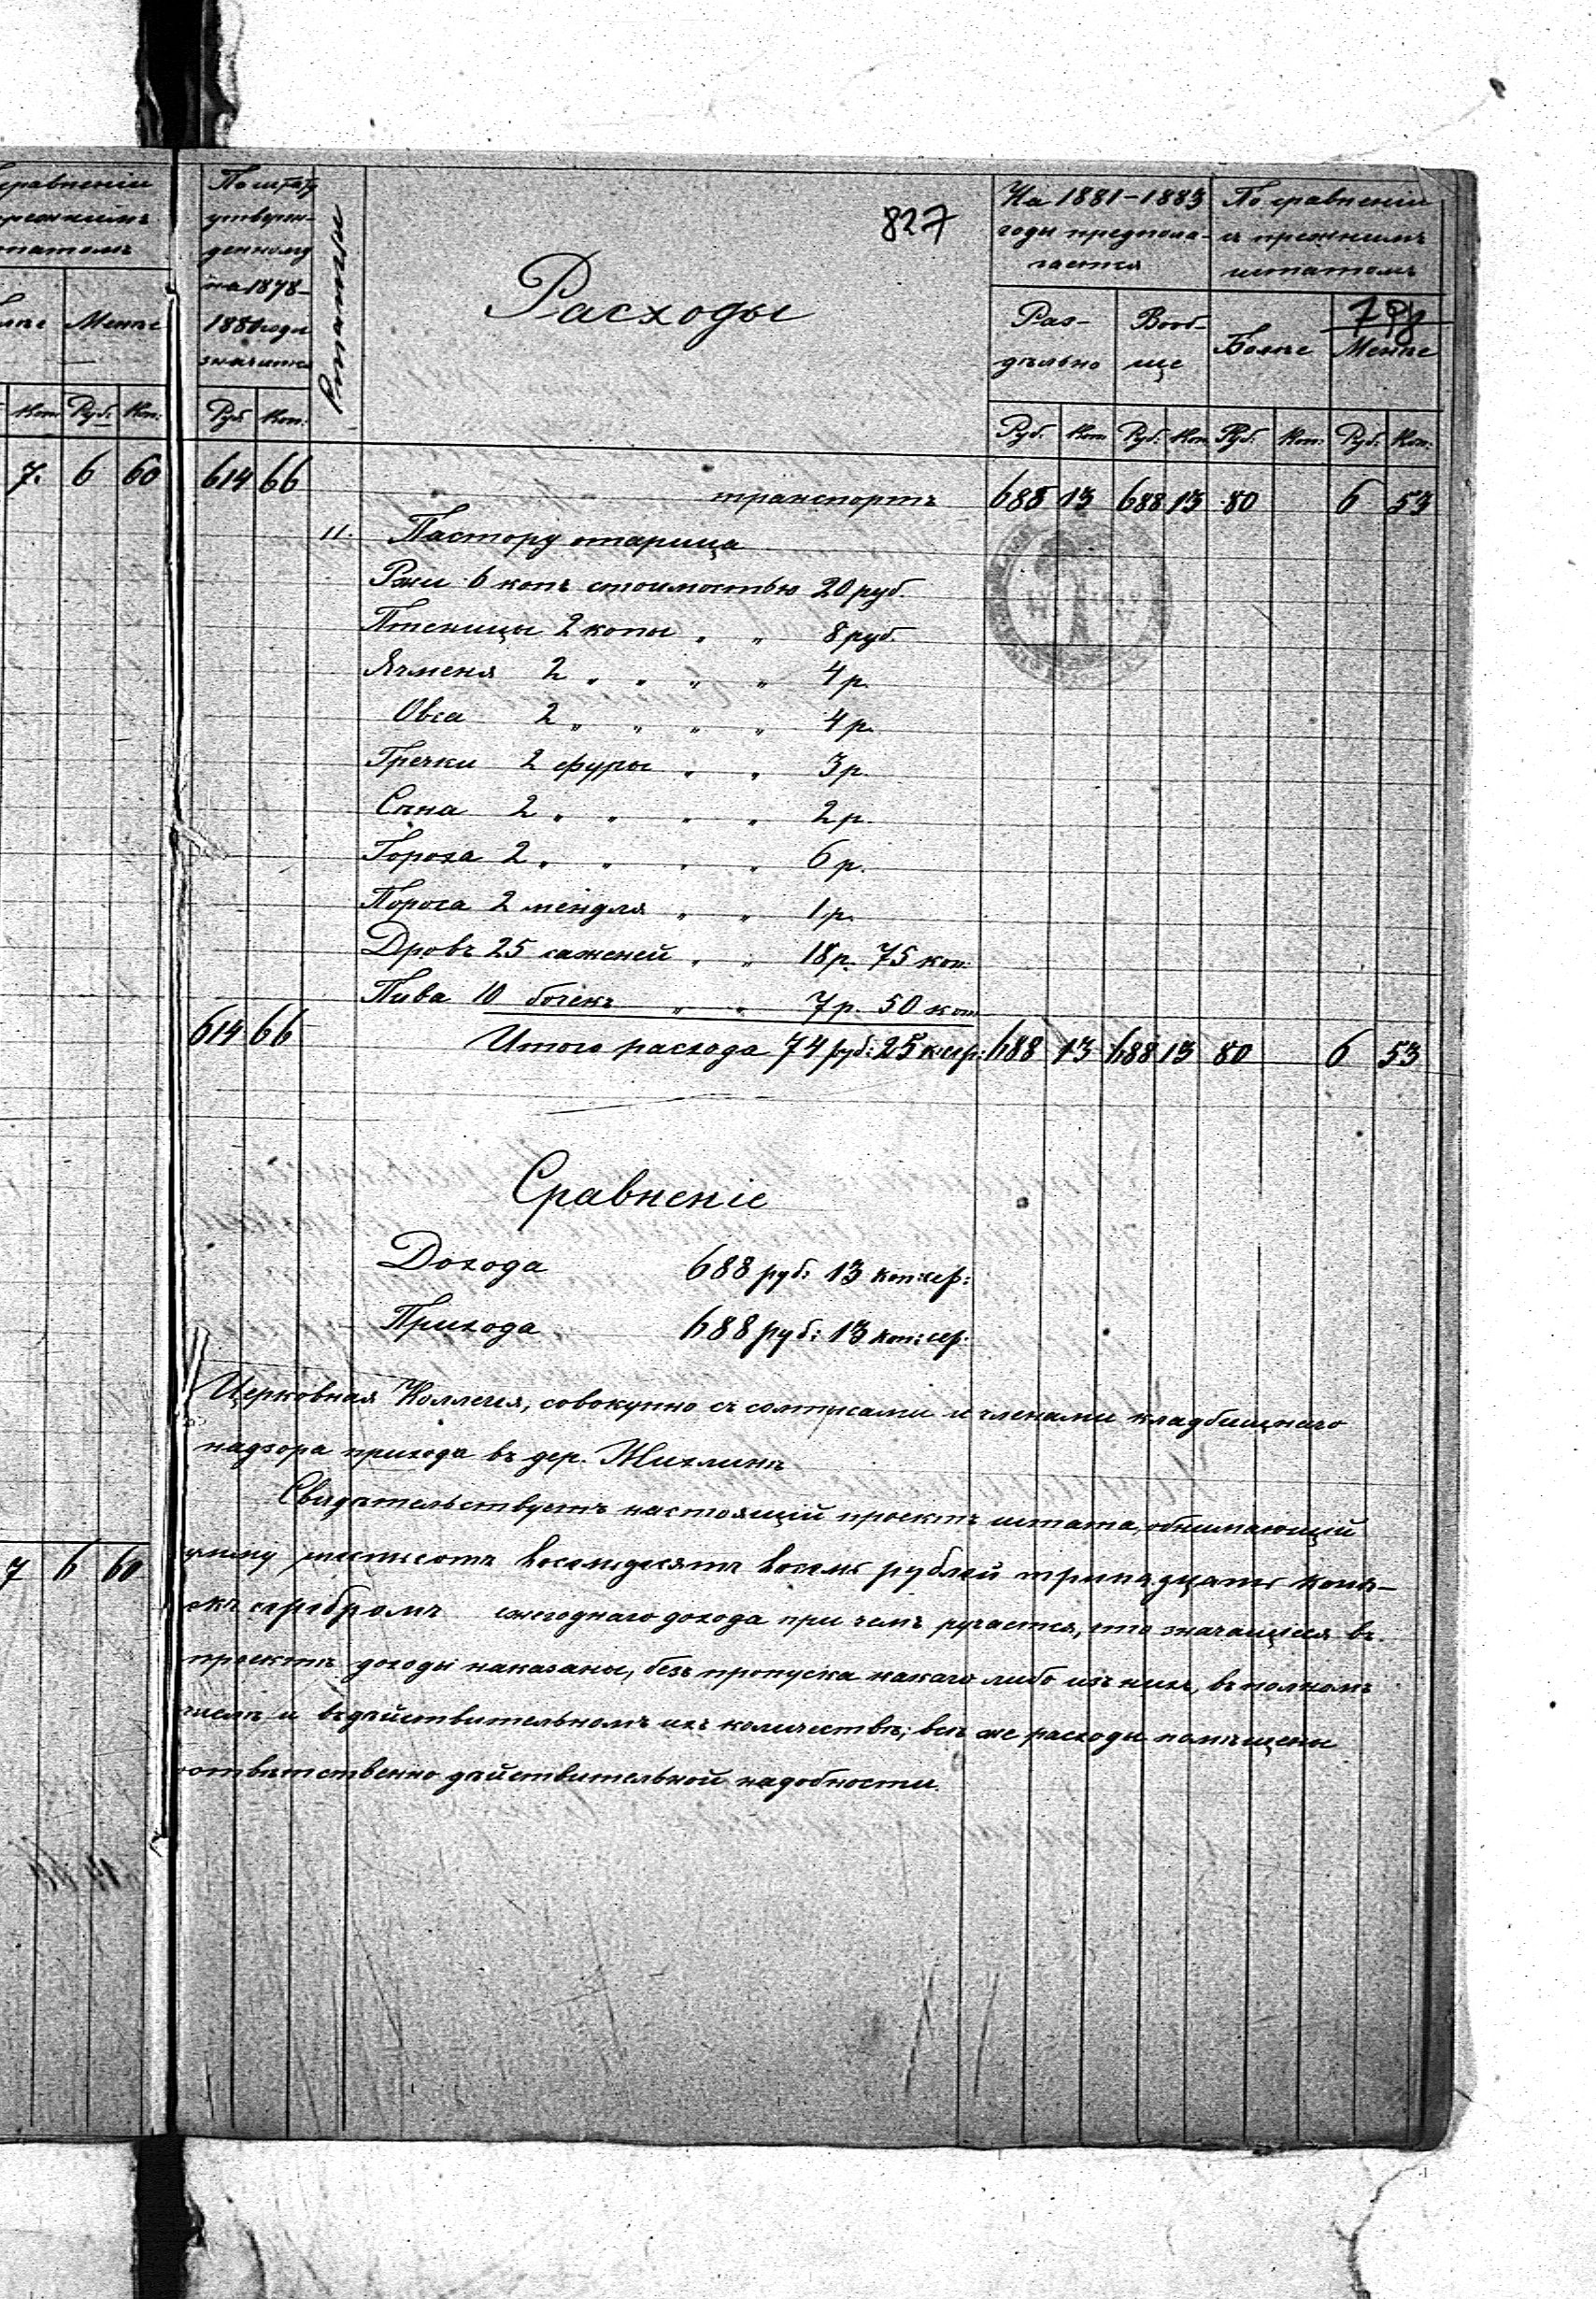 сравненіи
Менѣе
Коп. Руб. Коп.
7. 6 60
7 6 60
По штату
утверж-
денному
на 1878-
1880 годы
значится
Руб. Коп.
827
Расходы
На 1881-1883
годы предпола-
гается
Раз-
дѣльно
Вооб-
ще
По сравненіи
съ прежнимъ
штатомъ
Болѣе
Менѣе
Руб. Коп. Руб. Коп. Руб. Коп. Руб. Коп.
614 66 транспортъ 688 13 688 13 80 6 53
11. Пастору
Ржи 6 копъ стоимостью 20 руб.
Пшеницы 2 копы " " 8 руб.
Ячменя 2 " " " " 4 р.
Овса 2 " " " " 4 р.
Гречки 2 фуры " " 3 р.
Сѣна 2 " " " " 2 р.
Гороха 2 " " " " 6 р.
2 мендля " " 1 р.
Дровъ 25 саженей " " 18 р. 75 коп.
Пива 10 бочекъ " " 7 р. 50 коп
614 66 Итого расхода 74 руб: 25 к сер: 688 13 688 13 80 6 53
Сравненіе
Дохода 688 руб: 13 коп: сер:
Прихода 688 руб: 13 коп: сер:
Церковная Коллегія, совокупно съ солтысами и членами кладбищнаго
надзора прихода въ дер.
Свидѣтельствуетъ настоящій проектъ штата, обнимающій
сумму шестьсотъ восемьдесятъ восемь рублей тринадцать копѣ-
екъ серебромъ ежегоднаго дохода при чемъ ручается, что значащіеся въ
проектѣ доходы показаны, безъ пропуска какого либо изъ нихъ, въ полномъ
числѣ и въ дѣйствительномъ ихъ количествѣ; всѣ же расходы помѣщены
соотвѣтственно дѣйствительной надобности.